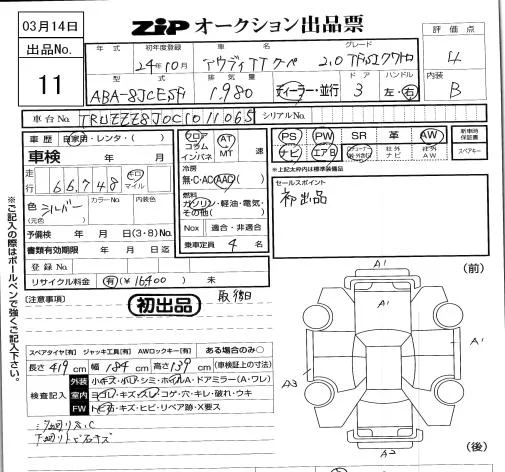 03月14日
出品No.
11
ZiP オークション出品票
評価点
4
内装
B
年式 初年度登録 車名 グレード
24年10月 アウディTTクーペ 2.0 TFSIクワトロ
型式 排気量 ドア ハンドル
ABA-8JCESF 1,980 ディーラー・並行 3 左・右
車台No. TRUZZZ8J0C1011065 シリアルNo.
車歴 自家用・レンタ・( )
車検 年 月
走行 66,748 キロ マイル
色(元色) シルバー カラーNo. 内装色
予備検 年 月 日(3・8)No.
書類有効期限 年 月 日迄
登録No.
リサイクル料金 有(¥16400) 未
フロア コラム インパネ AT MT 速
冷房
無・C・AC・AAC( )
燃料
ガソリン・軽油・電気・その他( )
Nox 適合・非適合
乗車定員 4 名
PS PW SR 革 AW 新車時保証書
ナビ エアB 社外ナビ 社外AW スペアキー
※上記太枠内は標準装備品
セールスポイント
初出品
※ご記入の際はボールペンで強くご記入下さい。
注意事項
初出品
スペアタイヤ[有] ジャッキ工具[有] AWロックキー[有] ある場合のみ○
長さ 419 cm 幅 184 cm 高さ 139 cm (車検証上の寸法)
検査記入
外装 小キズ・小凹・シミ・ホイルA・ドアミラー(A・ワレ)
室内 ヨゴレ・キズ・スレ・コゲ・穴・キレ・破れ・ウキ
FW トビ石・キズ・ヒビ・リペア跡・X要ス
(前)
A1
A1
A3
A1
A2
(後)